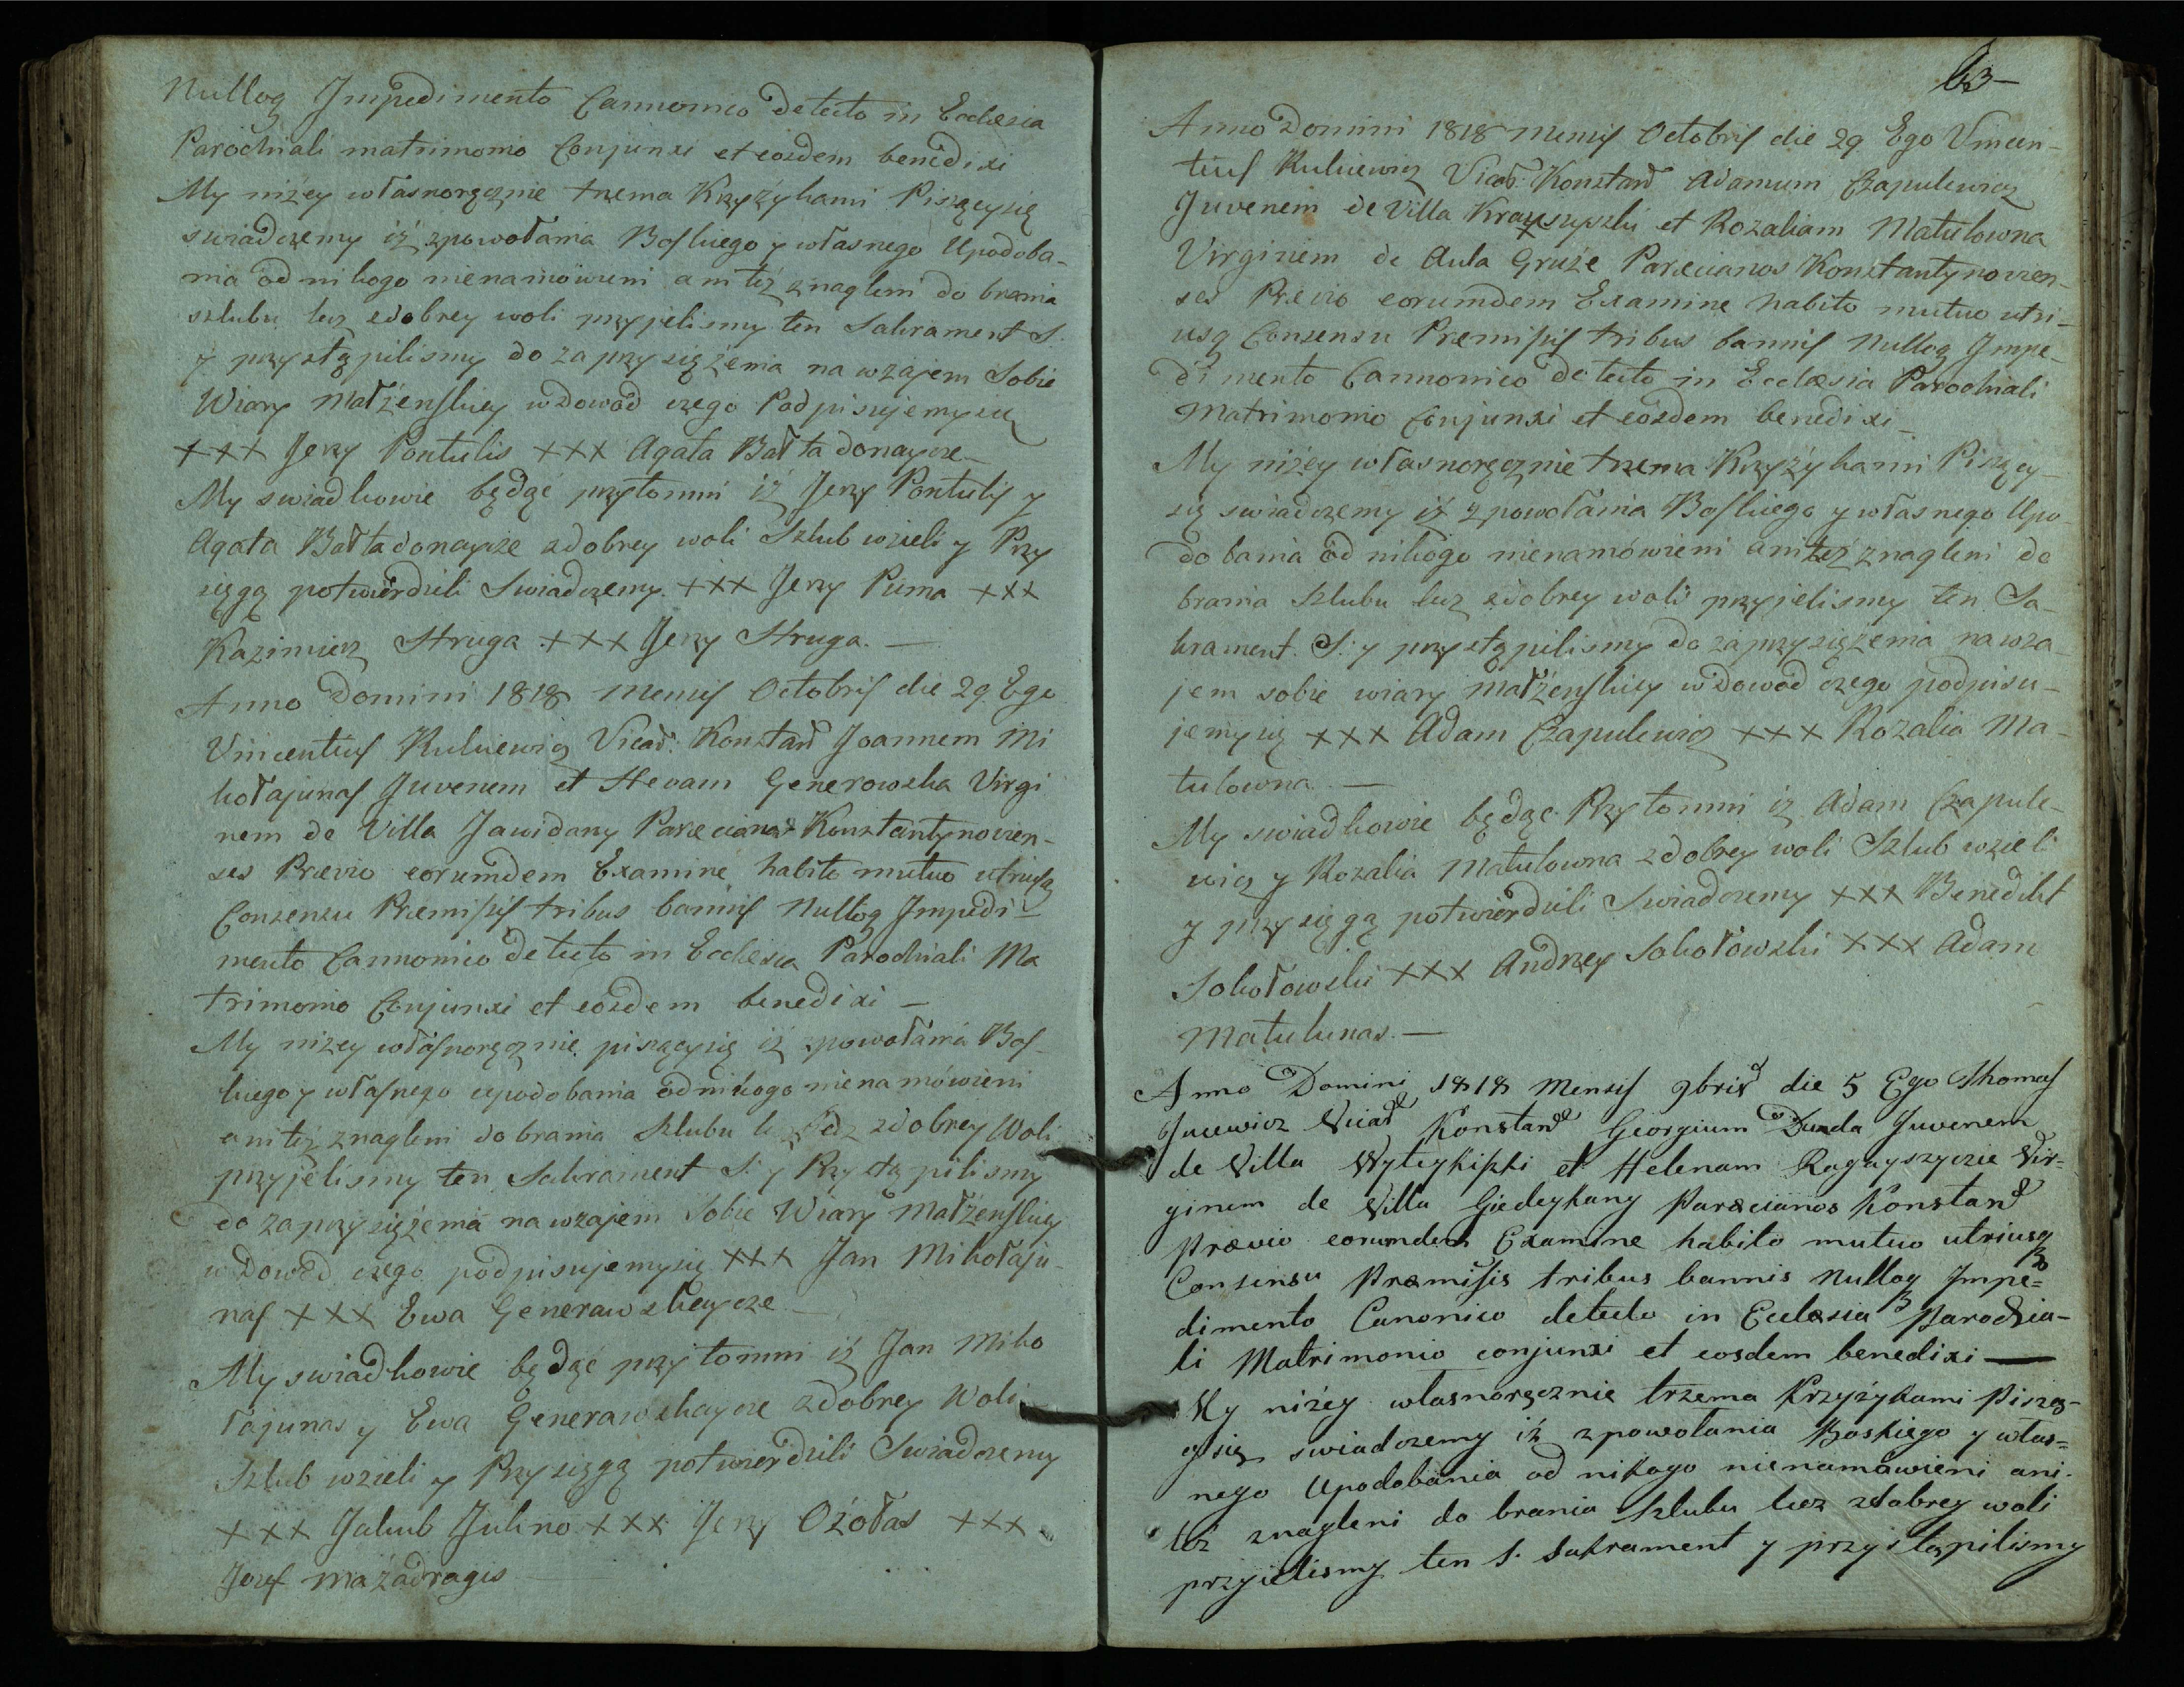 Nulloq Impedimento Cannonico detecto in Ecclesia
Parochiali matrimonio Conjunxi et eosdem benedixi
My niżey własnoręcznie trzema Krzyżykami Piszącysię
swiadczemy iż zpowołania Boskiego y własnego Upodoba-
nia od nikogo nienamówieni ani też znagleni do brania
szlubu lecz zdobrey woli przyjelismy ten Sakrament S.
y przystąpilismy do zaprzysiężenia na wzajem Sobie
Wiary Małżenskiey wdowod czego Podpisujemysię
+++ Jerzy Pontulis +++ Agata Bałtadonaycze
My swiadkowie będąć przytomni iż Jerzy Pontulis y
Agata Bałtadonaycze zdobrey woli Szlub wzieli y Przy
sięgą potwierdzili Swiadczemy +++ Jerzy Puma +++
Kazimierz Struga +++ Jerzy Struga. —
Anno Domini 1818 Mensis Octobris die 29 Ego
Vincentius Rulniewicz Vicar: Konstan Joannem Mi
kołajunas Juvenem et Hevam Generowska Virgi
nem de Villa Jawidany Paræcianos Konstantynovien-
ses Prævio eorumdem Examine habito mutuo utriusq
Consensu Præmissis tribus bannis Nulloq Impedi-
mento Cannonico detecto in Ecclesia Parochiali Ma
trimonio Conjunxi et eosdem benedixi —
My nizey własnoręcznie piszącysię iż zpowołania Bos-
kiego y własnego upodobania odnikogo nienamówieni
anitez znagleni do brania Szlubu zdobrey Woli
przyjelismy ten Sakrament S: y Przystąpilismy
do zaprzysiężenia nawzajem Sobie Wiary Małżenskiey
wdowod czego podpisujemysię +++ Jan Mikołaju-
nas +++ Ewa Generawskaycze —
My swiadkowie będąć przytomni iż Jan Miko
łajunas y Ewa Generawskaycze zdobrey Woli
Szlub wzieli y Przysięgą potwierdzili Swiadczemy
+++ Jakub Julino +++ Jerzy Ożołas +++
Jozef Mażadragis
63
Anno Domini 1818 Mensis Octobris die 29 Ego Vincen-
tius Rulniewicz Vicar: Konstan Adamum Czapulewicz
Juvenem de Villa et Rozaliam Matulowna
Virginem de Aula Gruże Paræcianos Konstantynovien-
ses Prævio eorumdem Examine habito mutuo utri-
usq Consensu Præmissis tribus bannis Nulloq Impe-
dimento Cannonico detecto in Ecclæsia Parochiali
Matrimonio Conjunxi et eosdem benedixi —
My niżey własnoręcznie trzema Krzyżykami Piszący-
się swiadczemy iż zpowołania Boskiego y własnego Upo-
dobania od nikogo nienamówieni ani też znagleni do
brania Szlubu lecz zdobrey woli przyjelismy ten Sa-
krament S. y przystąpilismy do zaprzysiężenia nawza-
jem sobie wiary Małżenskiey wdowod czego podpisu-
jemysię +++ Adam Czapulewicz +++ Rozalia Ma-
tulowna —
My swiadkowie będąc Przytomni iz Adam Czapule-
wicz y Rozalia Matulowna zdobrey woli Szlub wzieli
y przysięgą potwierdzili Swiadczemy +++ Benedikt
Sokołowski +++ Andrzey Sokołowski +++ Adam
Matulunas. —
Anno Domini 1818 Mensis 9bris die 5 Ego Thomas
Jucewicz Vicar Konstan Georgium Dunda Juvenem
de Villa Wyteykiszki et Helenam Ragayszycze Vir=
ginem de Villa Giedeykany Paræcianos Konstan
Prævio eorumdem Examine habito mutuo utriusq
Consensu Præmissis tribus bannis nulloq Impe=
dimento Canonico detecto in Ecclæsia Parochia-
li Matrimonio conjunxi et eosdem benedixi —
My niżey własnoręcznie trzema Krzyżykami Pisząc-
ysię swiadczemy iż zpowołania Boskiego y włas=
nego Upodobania od nikogo nienamawieni ani-
też znagleni do brania Szlubu lecz zdobrey woli
przyielismy ten S. Sakrament y przystąpilismy